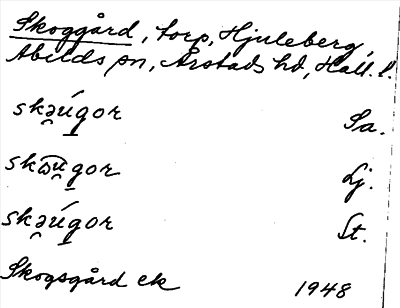 Skoggård, torp, Hjuleberg,
Abilds sn, Årstads hd, Hall. l.
skə̯úgor Sa.
skɷ̯u̅gor Lj.
skə̯úgor St.
Skogsgård ek 1948